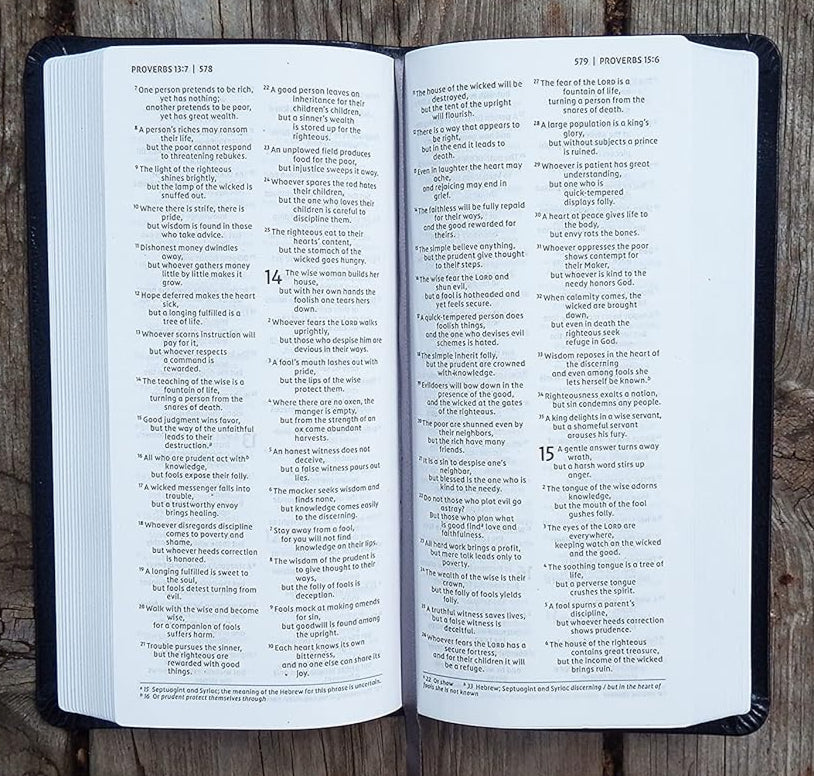 PROVERBS 13:7 | 578
7 One person pretends to be rich,
yet has nothing;
another pretends to be poor,
yet has great wealth.
8 A person's riches may ransom
their life,
but the poor cannot respond
to threatening rebukes.
9 The light of the righteous
shines brightly,
but the lamp of the wicked is
snuffed out.
10 Where there is strife, there is
pride,
but wisdom is found in those
who take advice.
11 Dishonest money dwindles
away,
but whoever gathers money
little by little makes it
grow.
12 Hope deferred makes the heart
sick,
but a longing fulfilled is a
tree of life.
13 Whoever scorns instruction will
pay for it,
but whoever respects
a command is
rewarded.
14 The teaching of the wise is a
fountain of life,
turning a person from the
snares of death.
15 Good judgment wins favor,
but the way of the unfaithful
leads to their
destruction.a
16 All who are prudent act withb
knowledge,
but fools expose their folly.
17 A wicked messenger falls into
trouble,
but a trustworthy envoy
brings healing.
18 Whoever disregards discipline
comes to poverty and
shame,
but whoever heeds correction
is honored.
19 A longing fulfilled is sweet to
the soul,
but fools detest turning from
evil.
20 Walk with the wise and become
wise,
for a companion of fools
suffers harm.
21 Trouble pursues the sinner,
but the righteous are
rewarded with good
things.
22 A good person leaves an
inheritance for their
children's children,
but a sinner's wealth
is stored up for the
righteous.
23 An unplowed field produces
food for the poor,
but injustice sweeps it away.
24 Whoever spares the rod hates
their children,
but the one who loves their
children is careful to
discipline them.
25 The righteous eat to their
hearts' content,
but the stomach of the
wicked goes hungry.
14 The wise woman builds her
house,
but with her own hands the
foolish one tears hers
down.
2 Whoever fears the LORD walks
uprightly,
but those who despise him are
devious in their ways.
3 A fool's mouth lashes out with
pride,
but the lips of the wise
protect them.
4 Where there are no oxen, the
manger is empty,
but from the strength of an
ox come abundant
harvests.
5 An honest witness does not
deceive,
but a false witness pours out
lies.
6 The mocker seeks wisdom and
finds none,
but knowledge comes easily
to the discerning.
7 Stay away from a fool,
for you will not find
knowledge on their lips.
8 The wisdom of the prudent is
to give thought to their
ways,
but the folly of fools is
deception.
9 Fools mock at making amends
for sin,
but goodwill is found among
the upright.
10 Each heart knows its own
bitterness,
and no one else can share its
joy.
a 15 Septuagint and Syriac; the meaning of the Hebrew for this phrase is uncertain.
b 16 Or prudent protect themselves through
579 | PROVERBS 15:6
The house of the wicked will be
destroyed,
but the tent of the upright
will flourish.
There is a way that appears to
be right,
but in the end it leads to
death.
Even in laughter the heart may
ache,
and rejoicing may end in
grief.
14 The faithless will be fully repaid
for their ways,
and the good rewarded for
theirs.
15 The simple believe anything,
but the prudent give thought
to their steps.
16 The wise fear the LORD and
shun evil,
but a fool is hotheaded and
yet feels secure.
17 A quick-tempered person does
foolish things,
and the one who devises evil
schemes is hated.
18 The simple inherit folly,
but the prudent are crowned
with knowledge.
19 Evildoers will bow down in the
presence of the good,
and the wicked at the gates
of the righteous.
20 The poor are shunned even by
their neighbors,
but the rich have many
friends.
21 It is a sin to despise one's
neighbor,
but blessed is the one who is
kind to the needy.
22 Do not those who plot evil go
astray?
But those who plan what
is good finda love and
faithfulness.
23 All hard work brings a profit,
but mere talk leads only to
poverty.
24 The wealth of the wise is their
crown,
but the folly of fools yields
folly.
25 A truthful witness saves lives,
but a false witness is
deceitful.
26 Whoever fears the LORD has a
secure fortress,
and for their children it will
be a refuge.
27 The fear of the LORD is a
fountain of life,
turning a person from the
snares of death.
28 A large population is a king's
glory,
but without subjects a prince
is ruined.
29 Whoever is patient has great
understanding,
but one who is
quick-tempered
displays folly.
30 A heart at peace gives life to
the body,
but envy rots the bones.
31 Whoever oppresses the poor
shows contempt for
their Maker,
but whoever is kind to the
needy honors God.
32 When calamity comes, the
wicked are brought
down,
but even in death the
righteous seek
refuge in God.
33 Wisdom reposes in the heart of
the discerning
and even among fools she
lets herself be known.b
34 Righteousness exalts a nation,
but sin condemns any people.
35 A king delights in a wise servant,
but a shameful servant
arouses his fury.
15 A gentle answer turns away
wrath,
but a harsh word stirs up
anger.
2 The tongue of the wise adorns
knowledge,
but the mouth of the fool
gushes folly.
3 The eyes of the LORD are
everywhere,
keeping watch on the wicked
and the good.
4 The soothing tongue is a tree of
life,
but a perverse tongue
crushes the spirit.
5 A fool spurns a parent's
discipline,
but whoever heeds correction
shows prudence.
6 The house of the righteous
contains great treasure,
but the income of the wicked
brings ruin.
a 22 Or show b 33 Hebrew; Septuagint and Syriac discerning / but in the heart of
fools she is not known